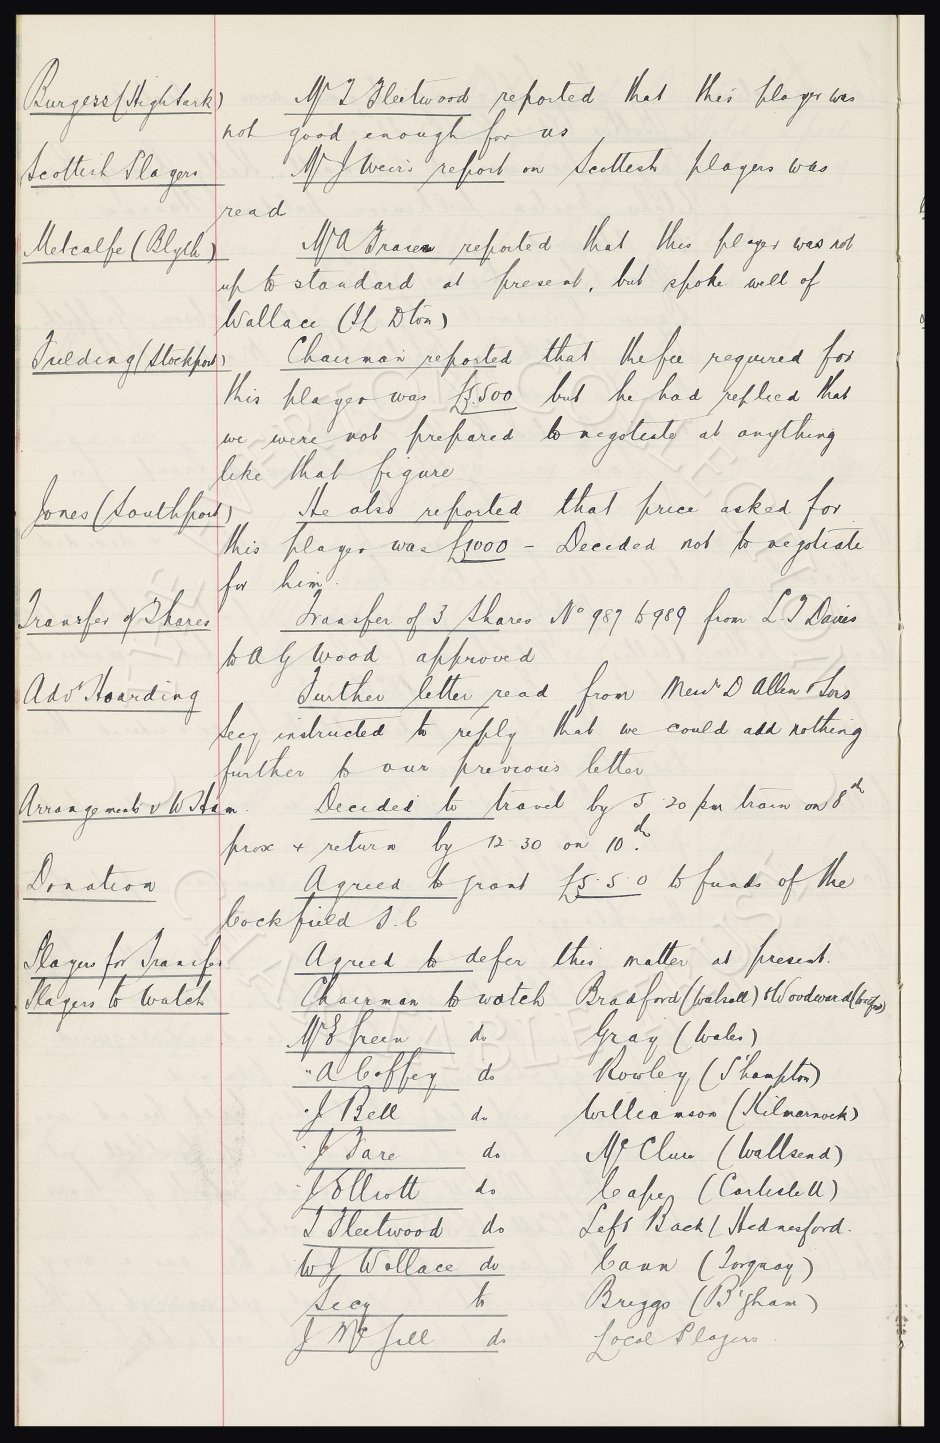 Burgess (High Park) Mr T Fleetwood reported that this player was
not good enough for us
Scottish Players Mr J Weir's report on Scottish players was
read
Metcalfe (Blyth) Mr A Fraser reported that this player was not
up to standard at present, but spoke well of
Wallace (H L Dton)
Fielding (Stockport) Chairman reported that the fee required for
this player was £3.500 but he had replied that
we were not prepared to negotiate at anything
like that figure
Jones (Southport) He also reported that price asked for
this player was £1000 - Decided not to negotiate
for him.
Transfer of Shares Transfer of 3 Shares No 987 to 989 from L.T Davies
to A G Wood approved
Advt Hoarding Further letter read from Messrs D Allen & Sons
Secy instructed to reply that we could add nothing
further to our previous letter
Arrangements v W Ham. Decided to travel by 5.20 pm train on 8th
prox & return by 12.30 on 10th.
Donation Agreed to grant £5.5.0 to funds of the
Cockfield F.C
Players for Transfer Agreed to defer this matter at present.
Players to Watch Chairman to watch Bradford (Walsall) & Woodward
Mr E Green do Gray (Wales)
" A Coffey do Rowley (S'hampton)
" J Bell do Williamson (Kilmarnock)
" J Fare do McClure (Wallsend)
" J Elliott do Cape (Carlisle U)
T Fleetwood do Left Back (Hednesford.
W J Wallace do Cann (Torquay)
Secy to Briggs (B'gham)
J McGill do Local Players.